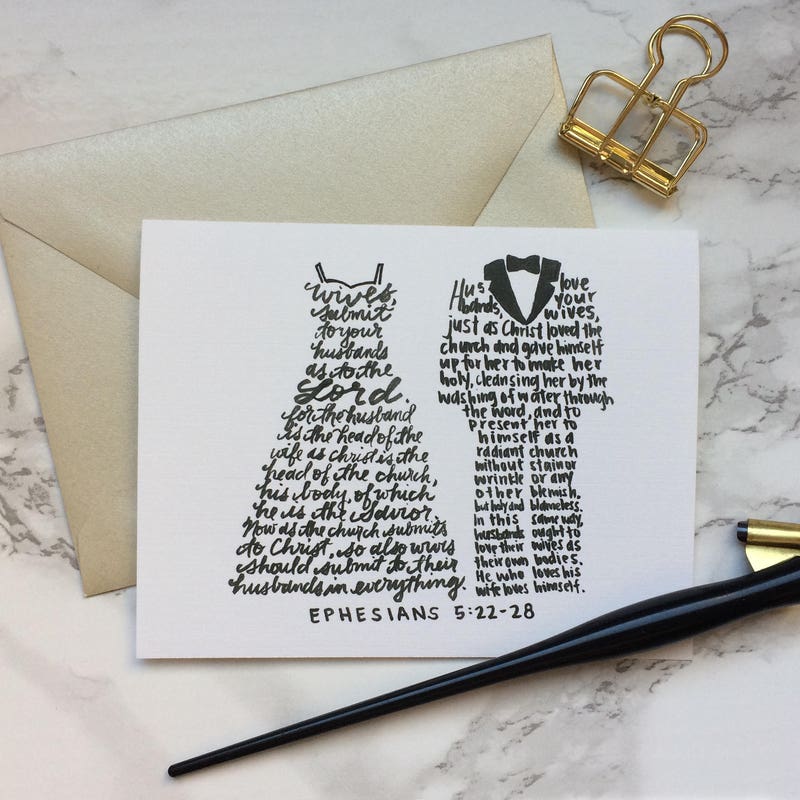 wives,
submit
to your
husbands
as to the
Lord.
for the husband
is the head of the
wife as christ is the
head of the church,
his body, of which
he is the Savior.
Now as the church submits
to Christ, so also wives
should submit to their
husbands in everything.
Hus love
bands, your
wives,
just as Christ loved the
church and gave himself
up for her to make her
holy, cleansing her by the
washing of water through
the word, and to
present her to
himself as a
radiant church
without stain or
wrinkle or any
other blemish,
but holy and blameless.
In this same way,
husbands ought to
love their wives as
their own bodies.
He who loves his
wife loves himself.
EPHESIANS 5:22-28